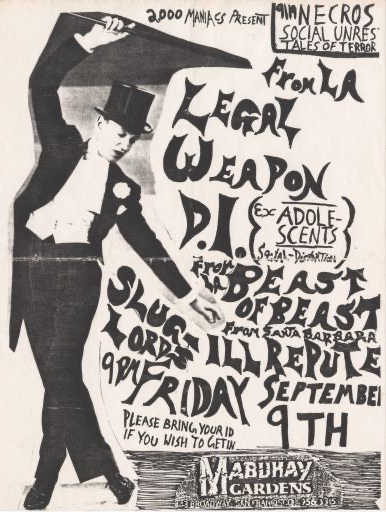 2,000 MANIACS PRESENT
9TH NECROS
SOCIAL UNRES
TALES OF TERROR
FROM LA
LEGAL
WEAPON
D.I.
(EX ADOLE-
SCENTS
SOCIAL-DISTORTION)
FROM LA
BEAST
OF BEAST
SLUG
LORDS
FROM SANTA BARBARA
ILL REPUTE
9PM FRIDAY SEPTEMBE
9TH
PLEASE BRING YOUR ID
IF YOU WISH TO GET IN
MABUHAY
GARDENS
BROADWAY SAN FRANCISCO 956-3315